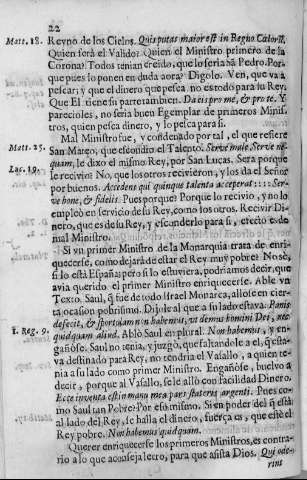 22
Matt. 18. Reyno de los Cielos. Quis putas maior est in Regno Cælorū.
Quien será el Valido? Quien el Ministro primero de la
Corona? Todos tenian creìdo, que lo seria Sā Pedro. Por-
que pues lo ponen en duda aora? Digolo. Ven, que va à
pescar; y que el dinero que pesca no es todo para su Rey.
Que El tiene su parte tambien. Da eis pro me, & pro te. Y
parecioles, no seria buen Egemplar de primeros Minis-
tros, quien pesca dinero, y lo pesca para sì.
Mal Ministro fue, y condenado por tal, el que refiere
Matt. 25. San Mateo, que escondio el Talento. Serve male. Serve ne-
quam, le dixo el mismo Rey, por San Lucas. Será porque
Luc. 19. le recivio? No, que los otros recivieron, y los da el Señor
por buenos. Accedens qui quinque talenta acceperat:::: Ser-
ve bone, & fidelis. Pues porque? Porque lo recivio, y no lo
empleò en servicio de su Rey, como los otros. Recivir Di-
nero, que es de su Rey, y esconderlo para sì, efecto es de
mal Ministro.
Si vn primer Ministro de la Monarquia trata de enri-
quecerse, como dejarà de estar el Rey muy pobre? No sè,
si lo està España; pero si lo estuviera, podriamos decir, que
avia querido el primer Ministro enriquecerse. Able vn
Texto. Saul, q̄ fue de todo Israel Monarca, allose en cier-
ta ocasion pobrisimo. Dijole al que a su lado estava. Panis
1. Reg. 9. defecit, & sportulam non habemus, ut demus homini Dei, nec
quidquam aliud. Ablò Saul en plural. Non habemus, y en-
gañòse. Saul no tenia, y juzgò, que faltandole a el, q̄ esta-
va destinado para Rey, no tendria el Vasallo, a quien te-
nia a su lado como primer Ministro. Engañòse, buelvo a
decir, porque al Vasallo, se le allò con facilidad Dinero.
Ecce inventa est in manu mea pars stateris argenti. Pues co-
mo Saul tan Pobre? Por eso mismo. Si en poder del q̄ està
al lado del Rey, se halla el dinero, fuerça es que estè el
Rey pobre. Non habemus quidquam.
Querer enriquecerse los primeros Ministros, es contra-
rio a lo que aconseja Iecro, para que asista Dios. Qui ode-
rint